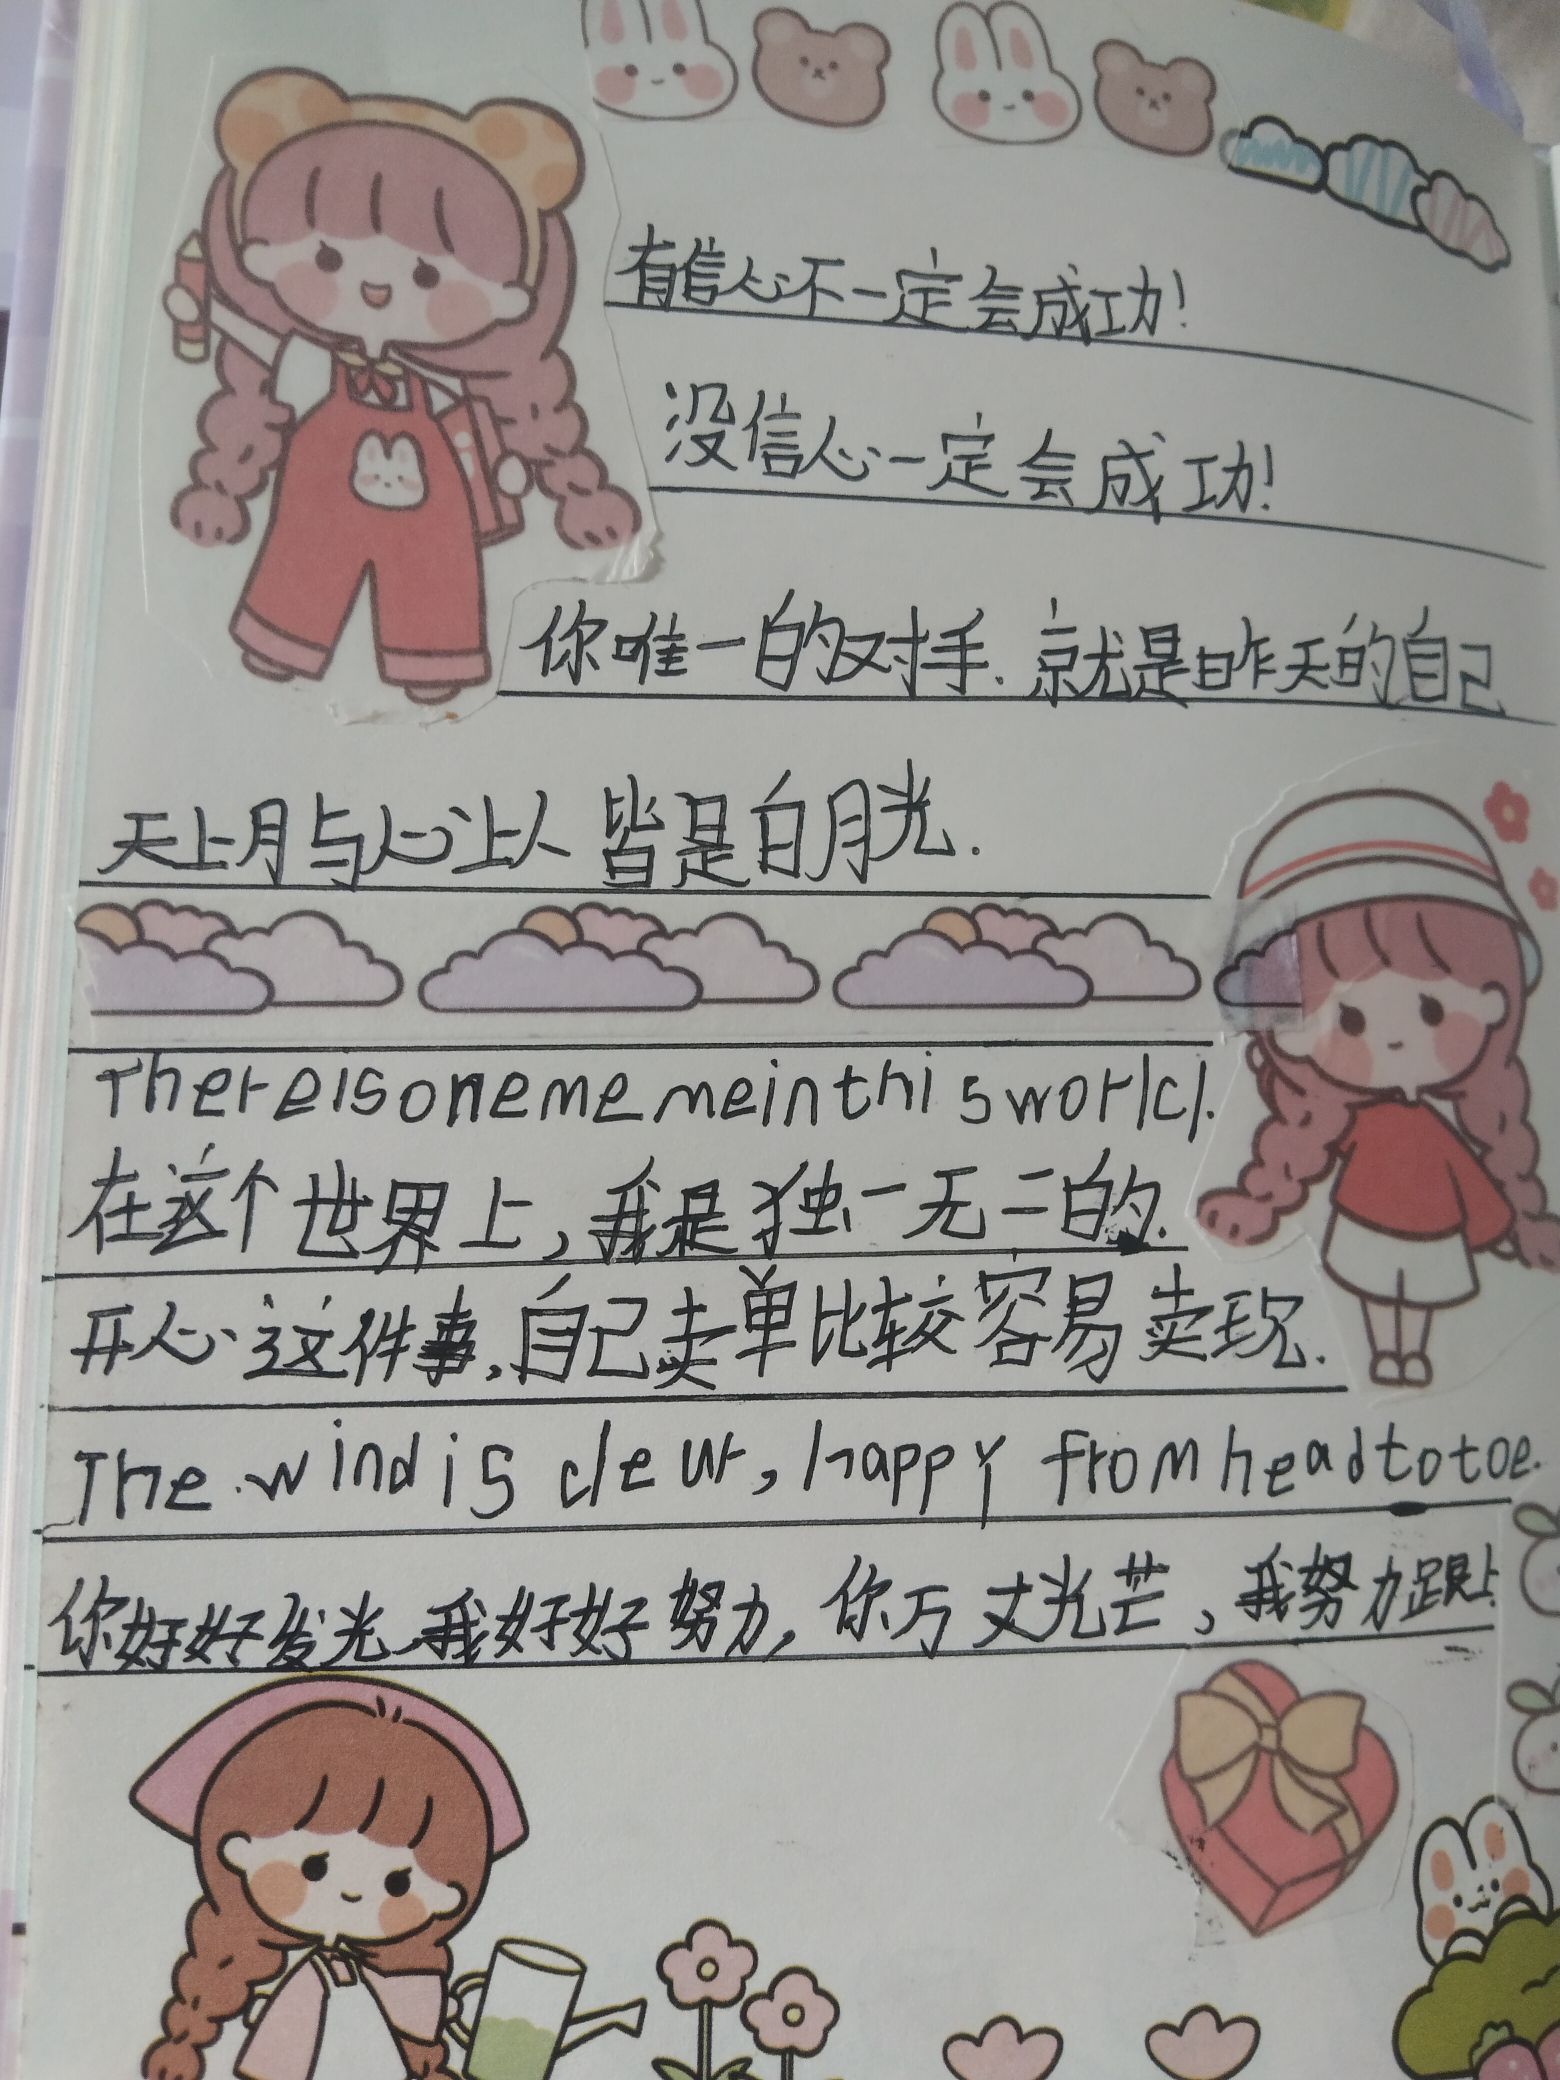 有信心不一定会成功!
没信心一定会成功!
你唯一的对手.京就是昨天的自己
天上月与心上人皆是白月光.
There is one me me in this world.
在这个世界上,我是独一无二的.
开心这件事,自己卖单比较容易卖现.
The wind is cleur, happy from head to toe.
你好好发光,我好好努力,你万丈光芒,我努力跟上